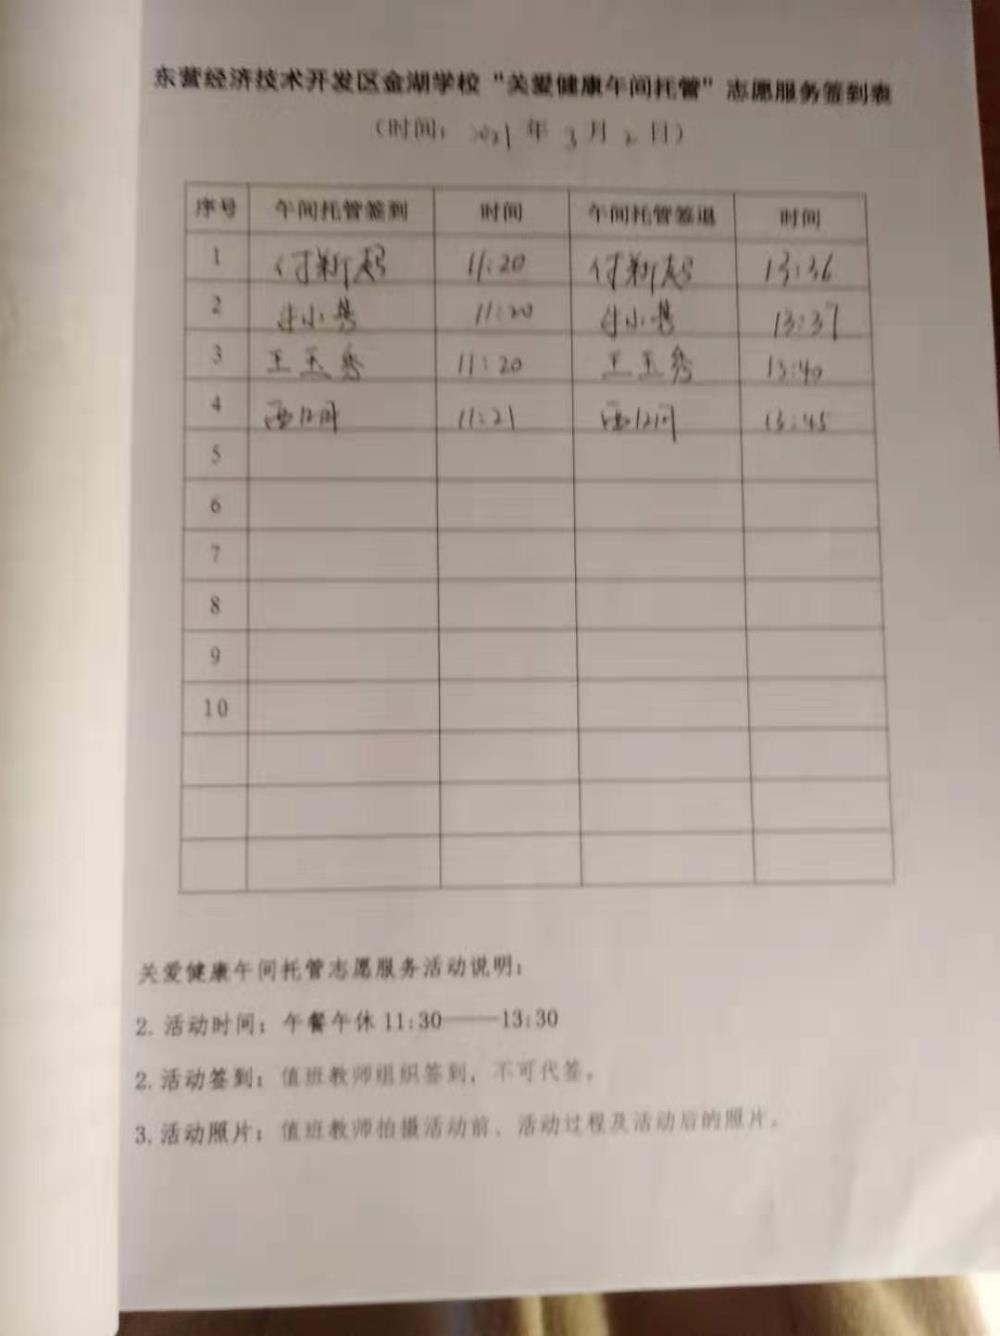 东营经济技术开发区金湖学校“关爱健康午间托管”志愿服务签到表
（时间：2021 年 3 月 2 日）
序号 午间托管签到 时间 午间托管签退 时间
1 付新起 11:20 付新起 13:36
2 11:20 13:37
3 王玉秀 11:20 王玉秀 13:40
4 11:21 13:45
5
6
7
8
9
10
关爱健康午间托管志愿服务活动说明：
2. 活动时间：午餐午休 11:30——13:30
2. 活动签到：值班教师组织签到，不可代签。
3. 活动照片：值班教师拍摄活动前、活动过程及活动后的照片。